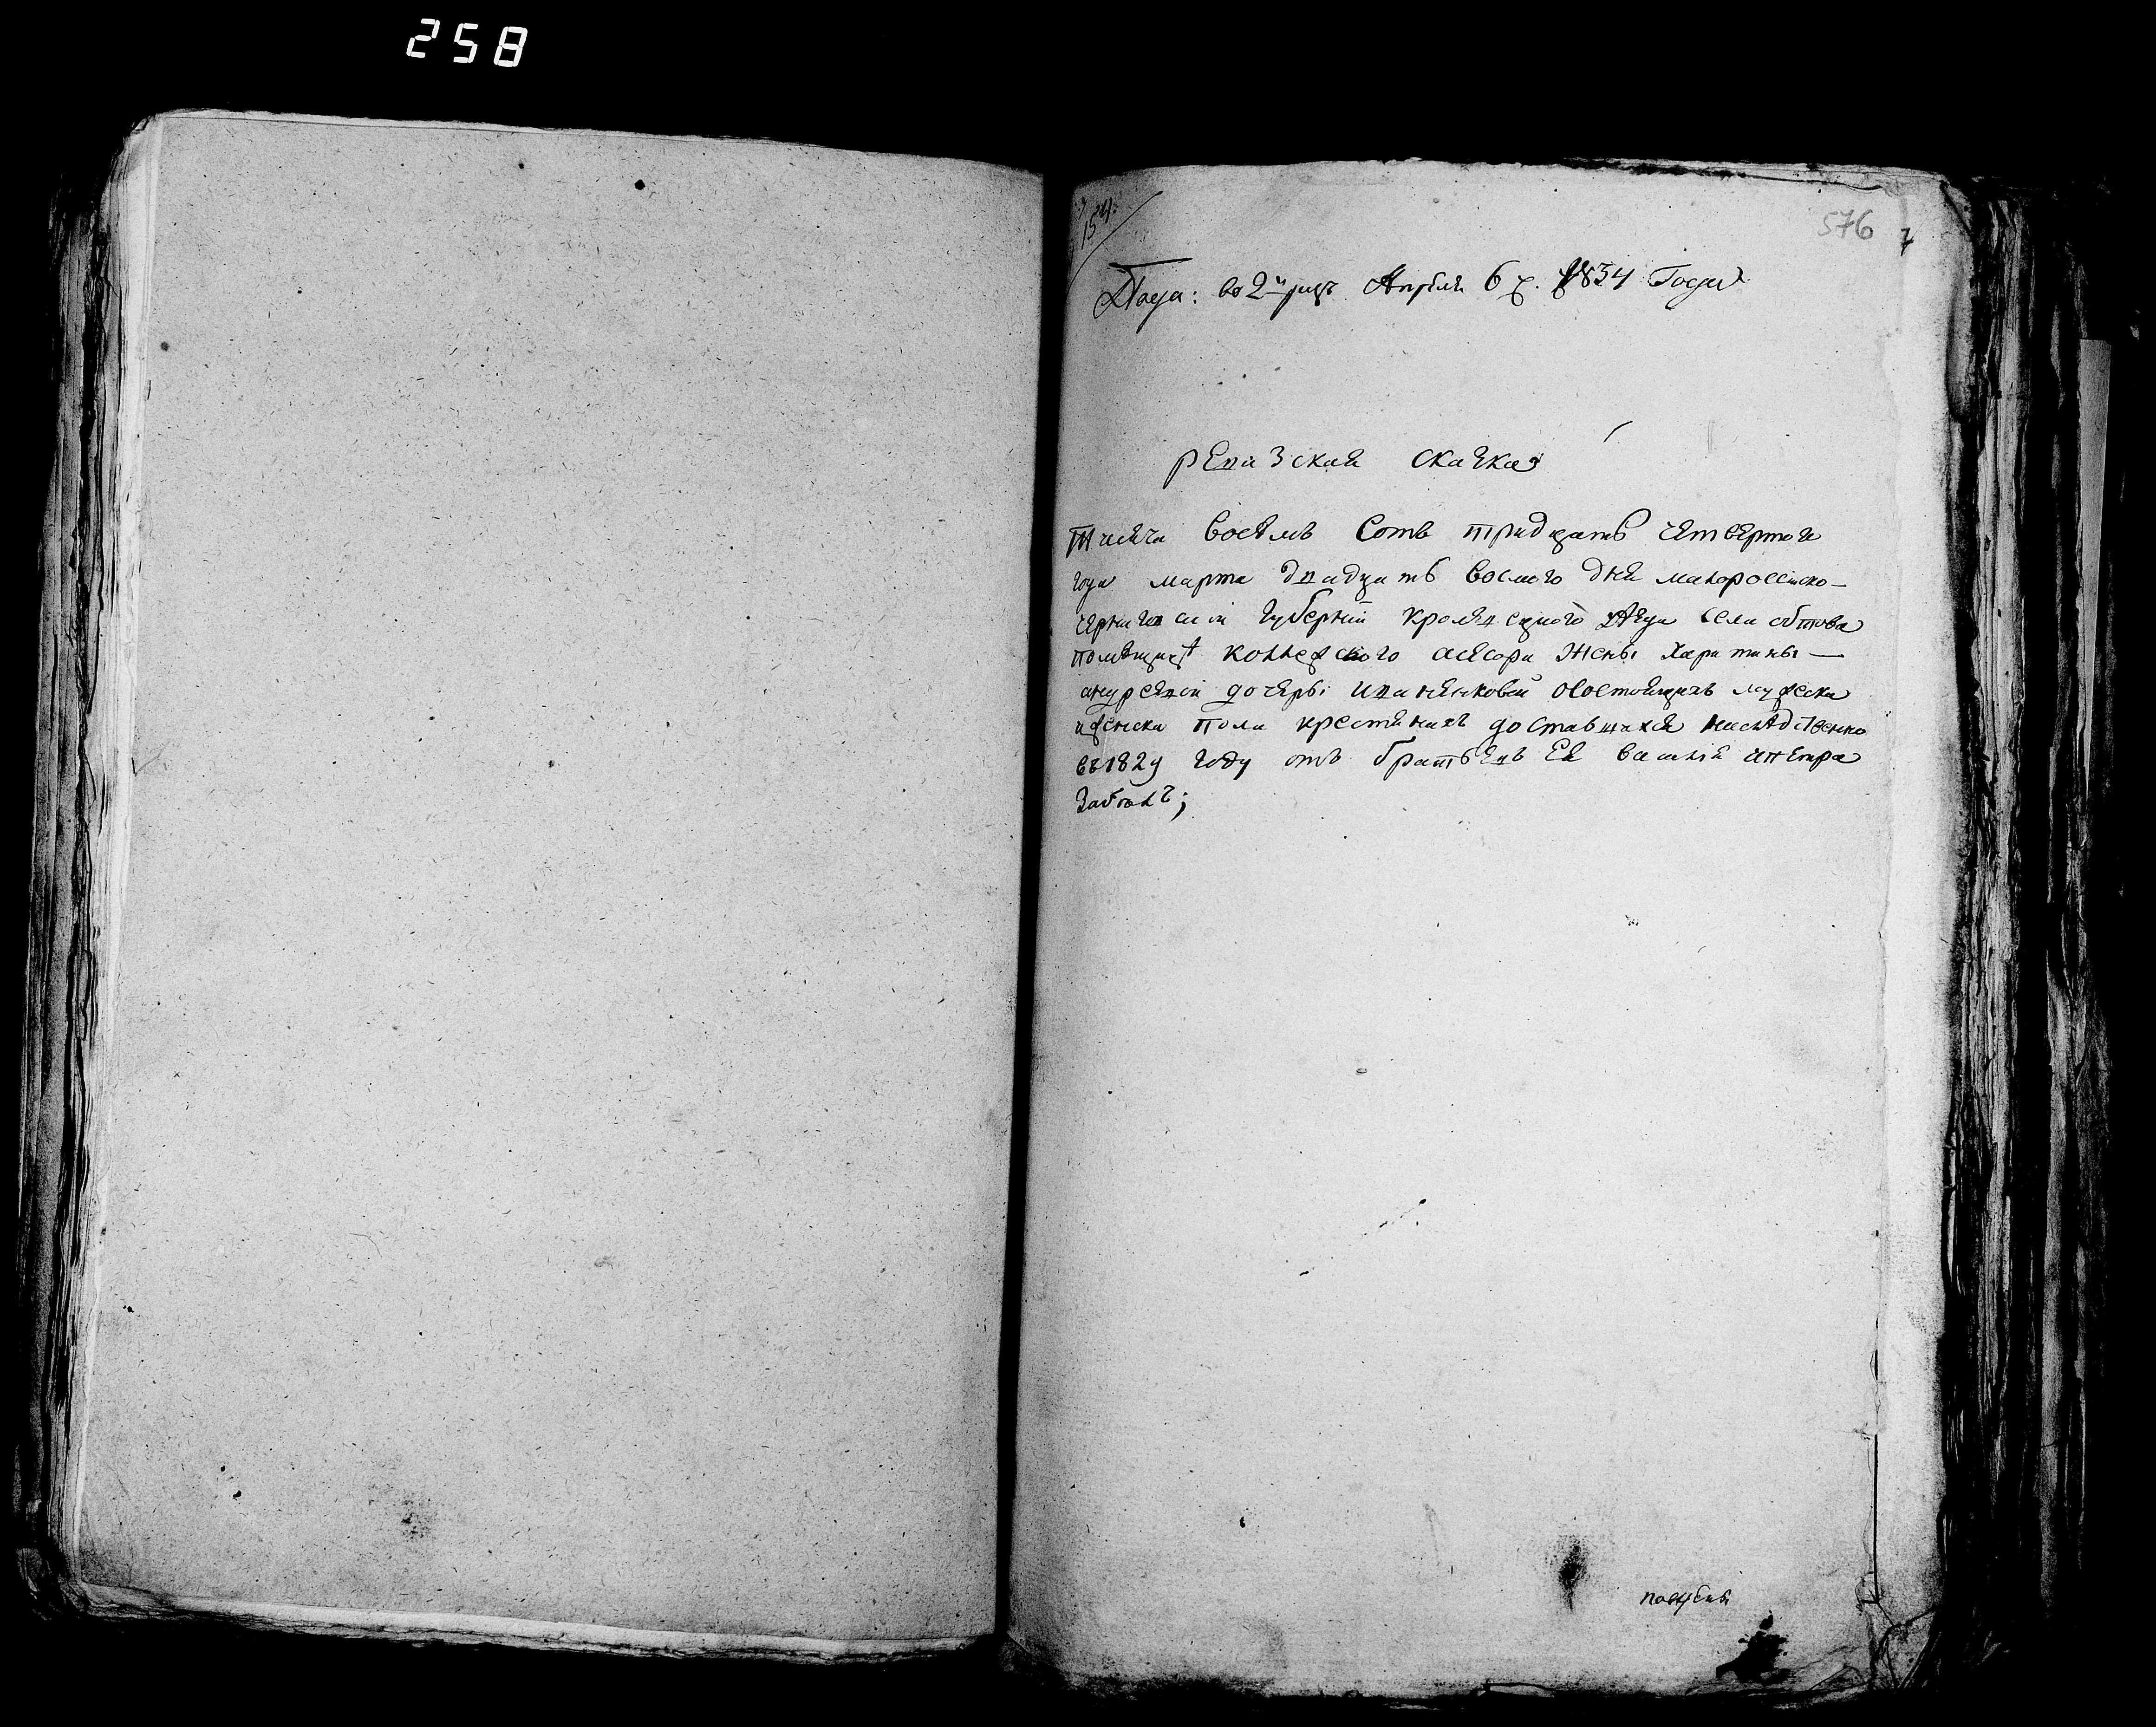 258
154.
576
7
Пода: во 2й разъ Апреля 6 д. 1834 Года
ревизская скаска
тисяча восемъ сотъ тридцать четвертого
года марта двадцать восмого дня малоросийско-
черниговской губерний кролевецкого уезда села обтова
помещицы коллежского асесора жены Харитины
андреевой дочеры иваненковой осостоящихъ мужеска
иженска пола крестянахъ доставшихся наследственно
въ 1829 году отъ братьевъ Ея василия ипетра